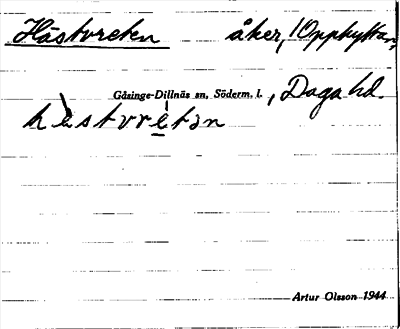 Hästvreten åker, 1 Opphyttan,
Gåsinge-Dillnäs sn, Söderm. l., Daga hd.
hèstvre̲tən
Artur Olsson 1944